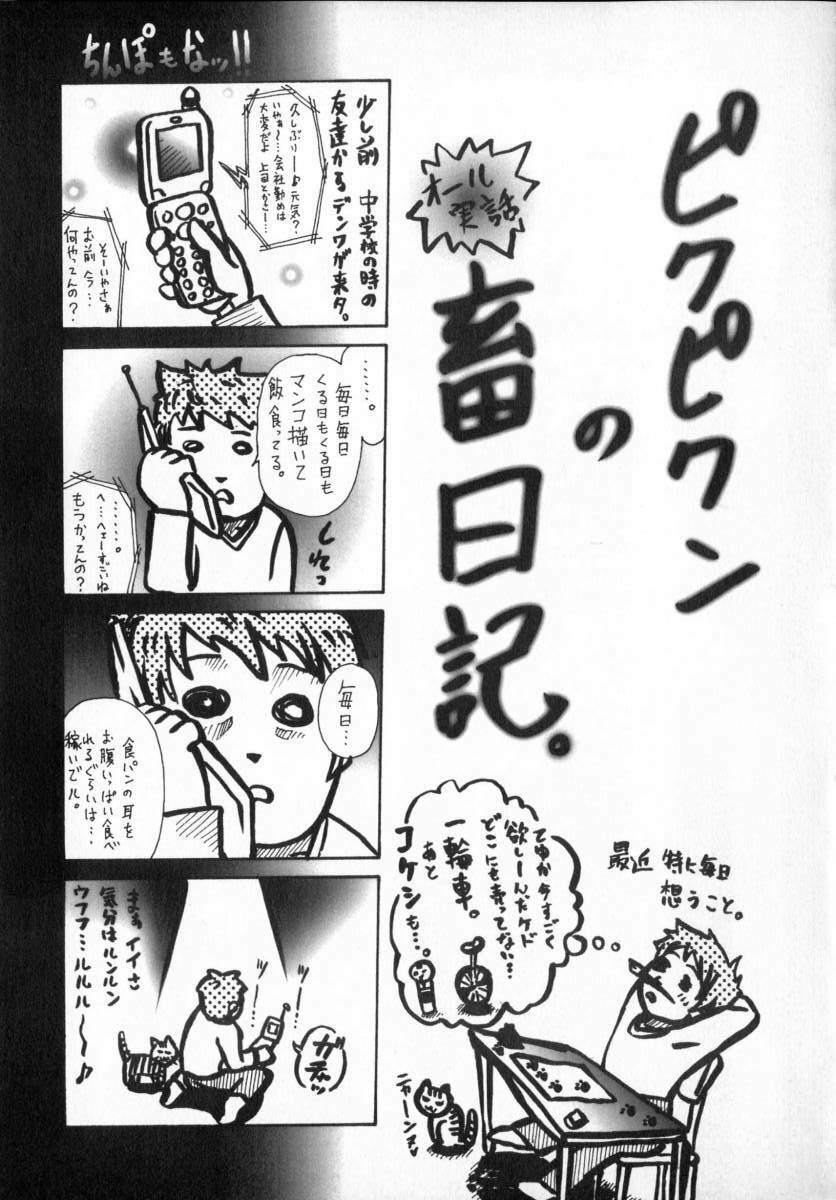 ピクピクン
の
オール
実話
畜日記。
ちんぽもなッ!!
少し前 中学校の時の
友達からデンワが来タ。
久しぶりー♪元気?
いやぁ〜…会社勤めは
大変だよ 上司とかさー…
そーいやさぁ
お前 今…
何やってんの?
……。
毎日毎日
くる日もくる日も
マンコ描いて
飯 食ってる。
しれっ
……。
へ…へェーすごいね
もうかってんの?
毎日…
食パンの耳を
お腹いっぱい食べ
れるぐらいは…
稼いでル。
ガチャッ
ツー
ツー
まぁ イイさ
気分はルンルン
ウフフ…ルルル〜〜♪
最近 特に毎日
想うこと。
てゆか今すごく
欲しーんだケド
どこにも売ってない…
一輪車。
あと
コケシも…。
ニャーン